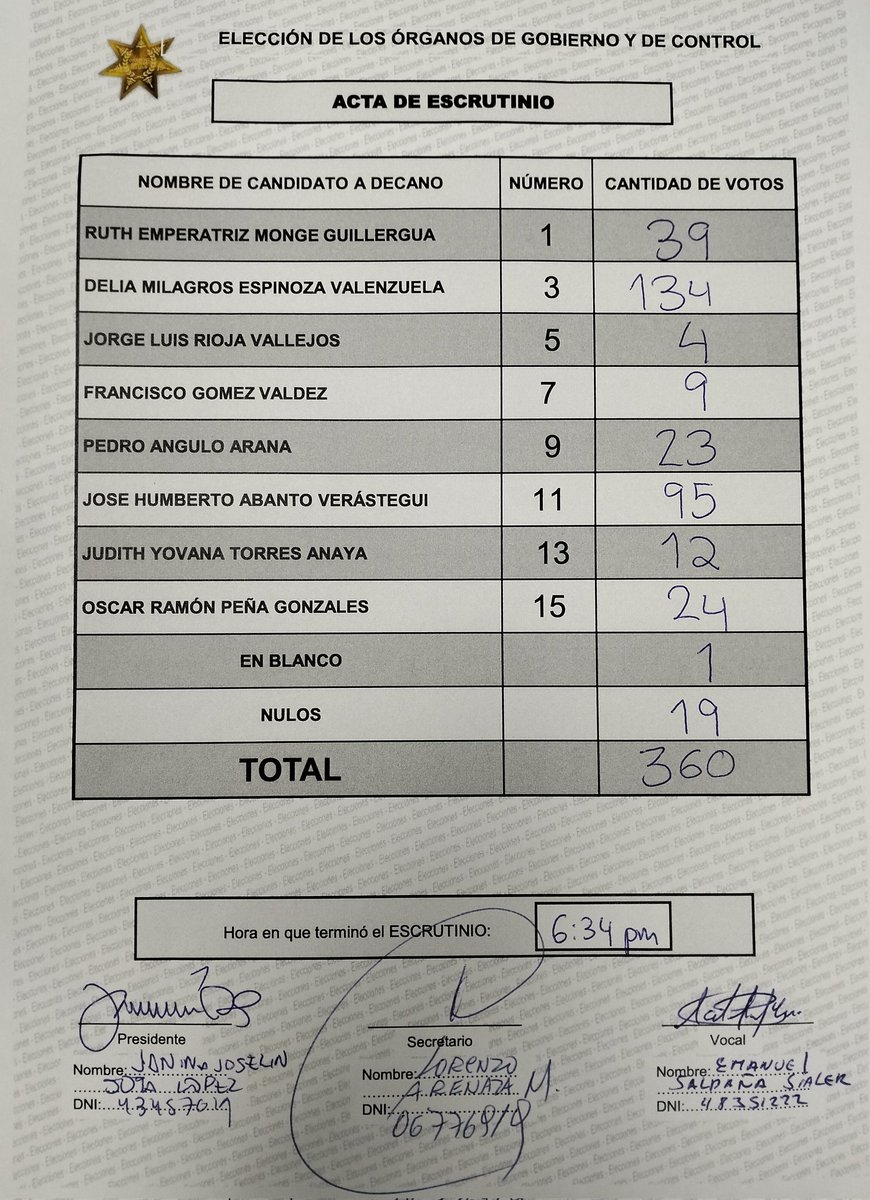 ELECCIÓN DE LOS ÓRGANOS DE GOBIERNO Y DE CONTROL
ACTA DE ESCRUTINIO
NOMBRE DE CANDIDATO A DECANO NÚMERO CANTIDAD DE VOTOS
RUTH EMPERATRIZ MONGE GUILLERGUA 1 39
DELIA MILAGROS ESPINOZA VALENZUELA 3 134
JORGE LUIS RIOJA VALLEJOS 5 4
FRANCISCO GOMEZ VALDEZ 7 9
PEDRO ANGULO ARANA 9 23
JOSE HUMBERTO ABANTO VERÁSTEGUI 11 95
JUDITH YOVANA TORRES ANAYA 13 12
OSCAR RAMÓN PEÑA GONZALES 15 24
EN BLANCO 1
NULOS 19
TOTAL 360
Hora en que terminó el ESCRUTINIO: 6:34 pm
Presidente Secretario Vocal
Nombre: JANINA JOSELIN Nombre: LORENZO Nombre: EMANUEL
LOPEZ M. SALDAÑA SIALER
DNI: DNI: DNI: 48351222